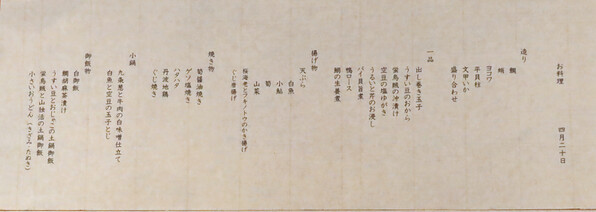 お料理
四月二十日
造り
鯛
蛸
ヨコワ
平貝柱
文甲いか
盛り合わせ
一品
出し巻き玉子
うすい豆のおから
蛍烏賊の沖漬け
空豆の塩ゆがき
うるいと芹のお浸し
バイ貝旨煮
鴨ロース
鯛の生姜煮
揚げ物
天ぷら
白魚
小鮎
筍
山菜
桜海老とフキノトウのかき揚げ
ぐじ唐揚げ
焼き物
筍醤油焼き
ゲソ塩焼き
ハタハタ
丹波地鶏
ぐじ焼き
小鍋
九条葱と牛肉の白味噌仕立て
白魚と空豆の玉子とじ
御飯物
白御飯
鯛胡麻茶漬け
うすい豆とおじゃこの土鍋御飯
蛍烏賊と山独活の土鍋御飯
小さいおうどん（きざみ・たぬき）